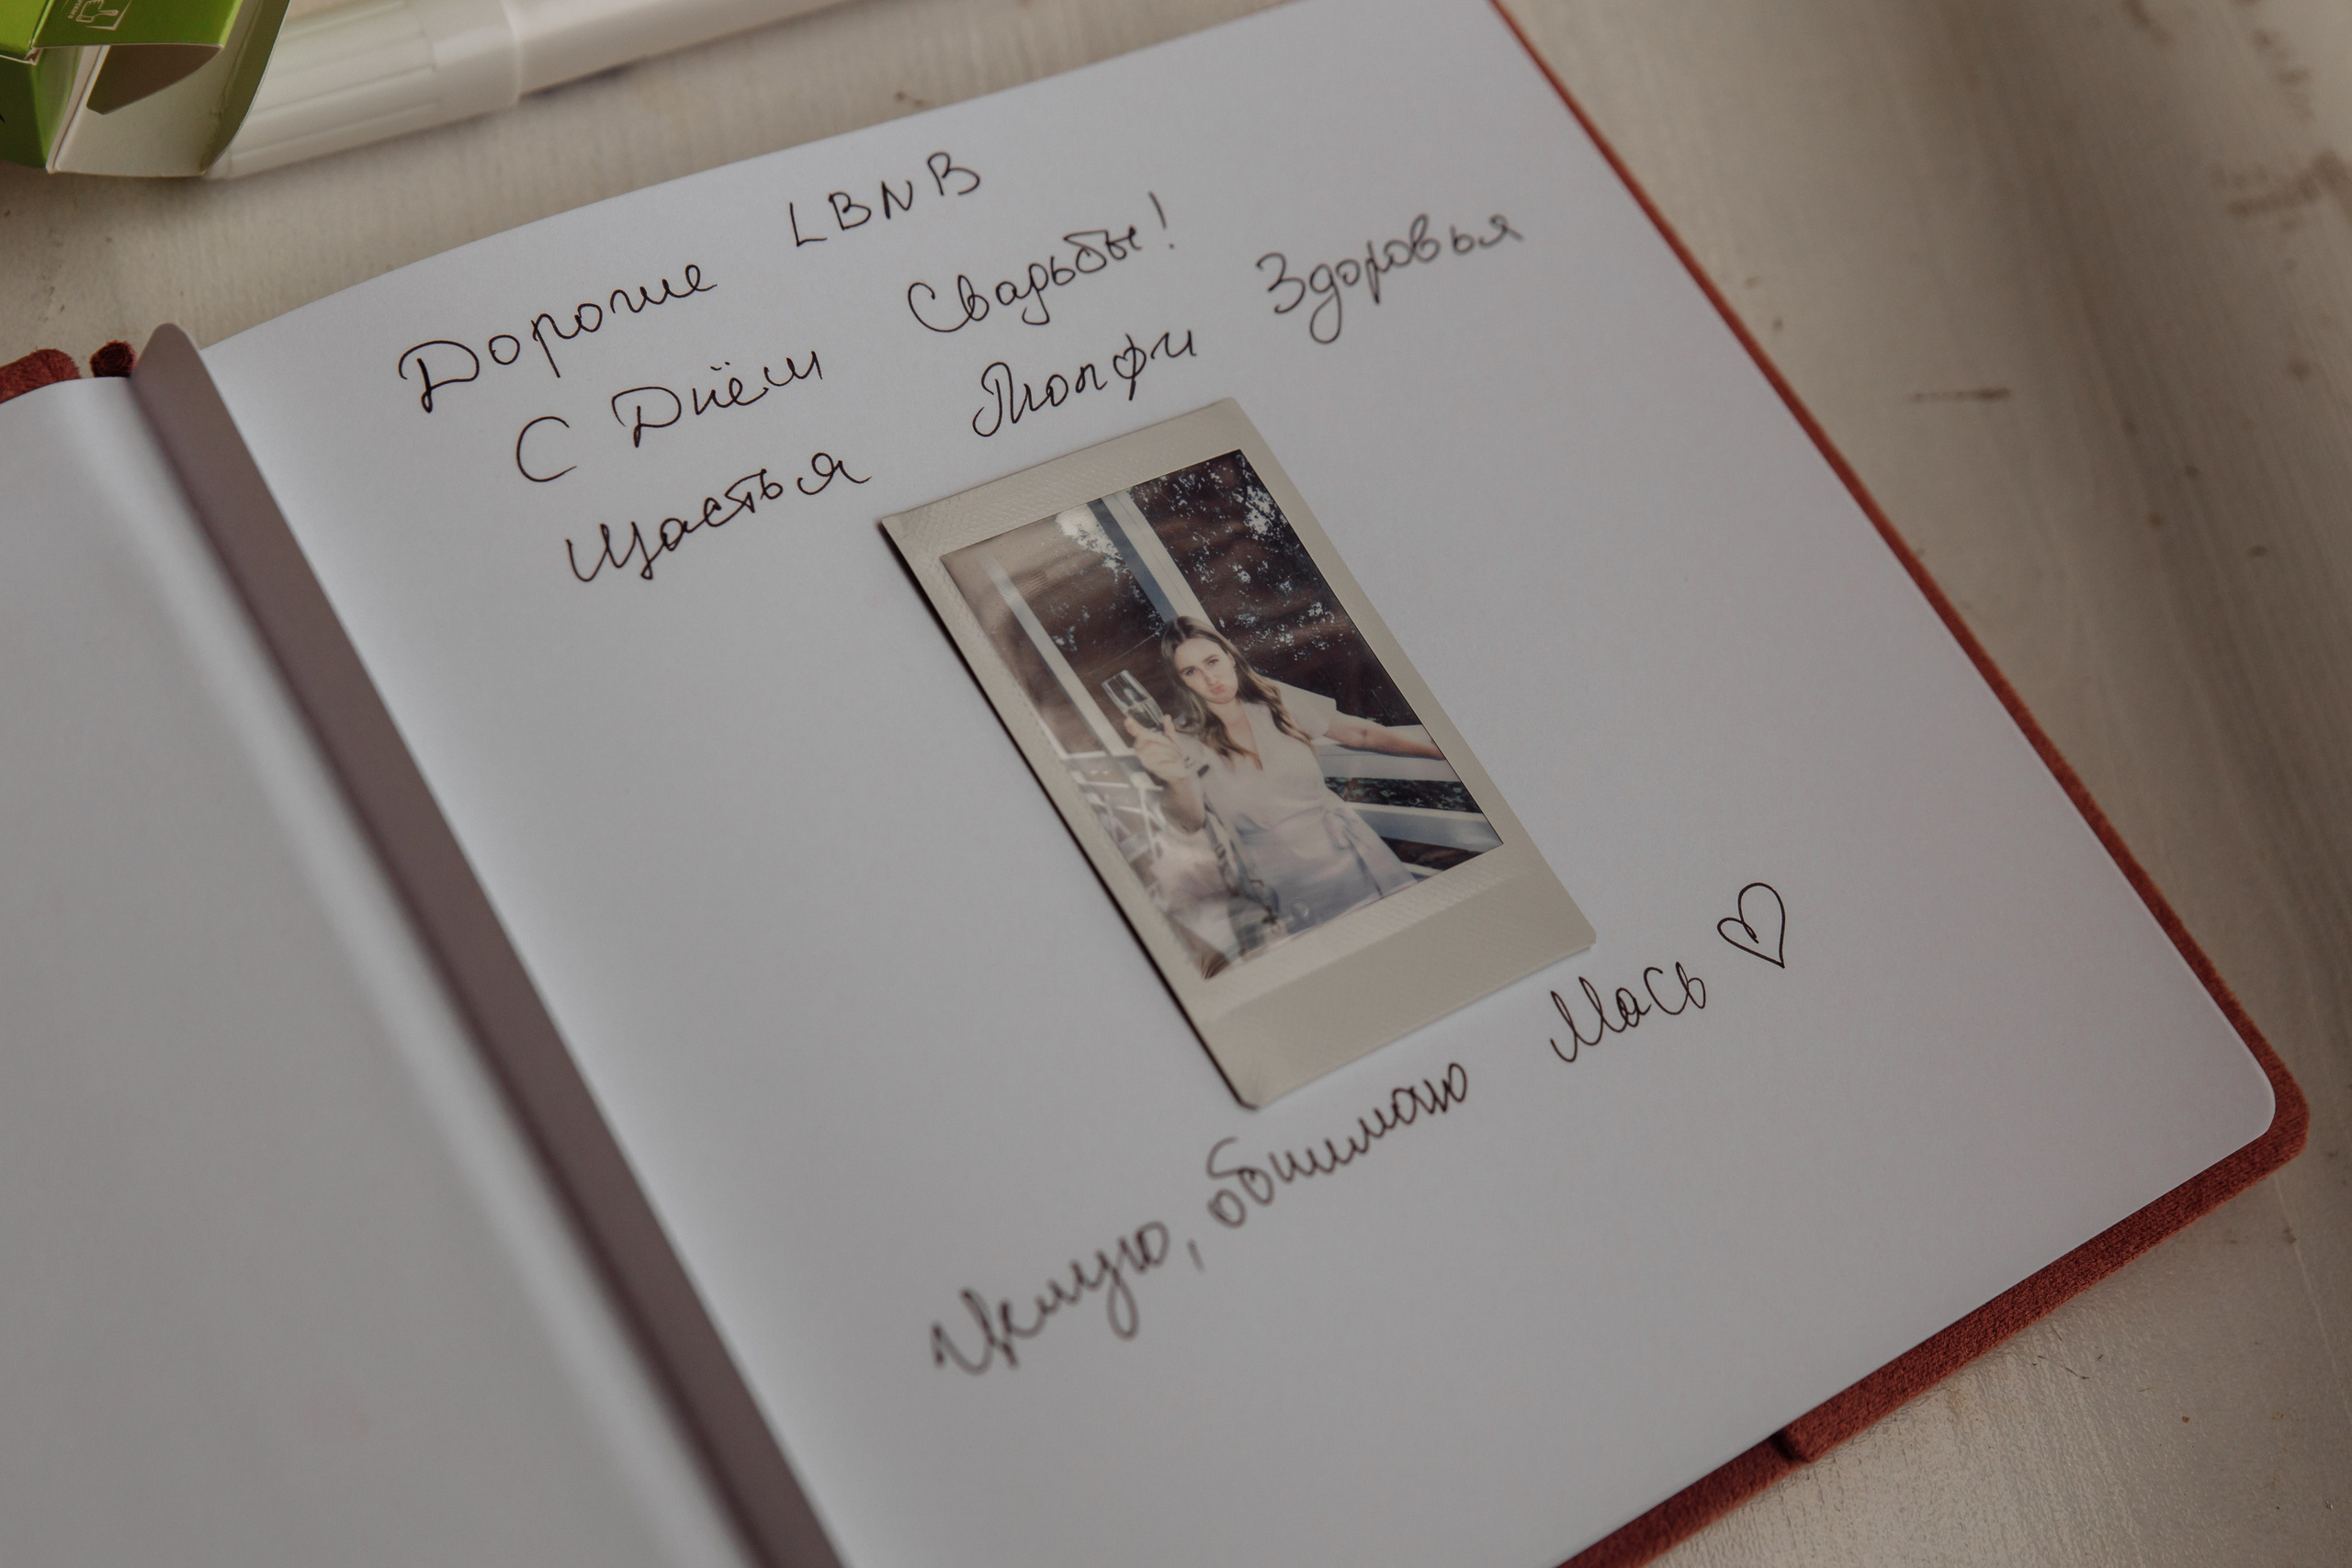 Дорогие LBNB
С Днём Свадьбы!
Щастья Тюпфи Здоровья
Целую, обнимаю Мась ♡